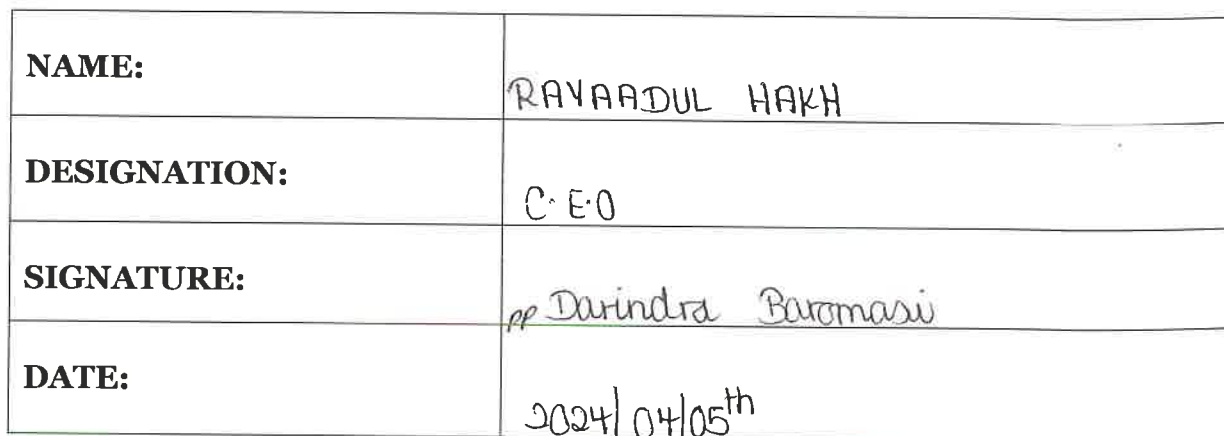 NAME: RAYAADUL HAKH
DESIGNATION: C.E.O
SIGNATURE: pp Darindra Baromasi
DATE: 2024/04/05th